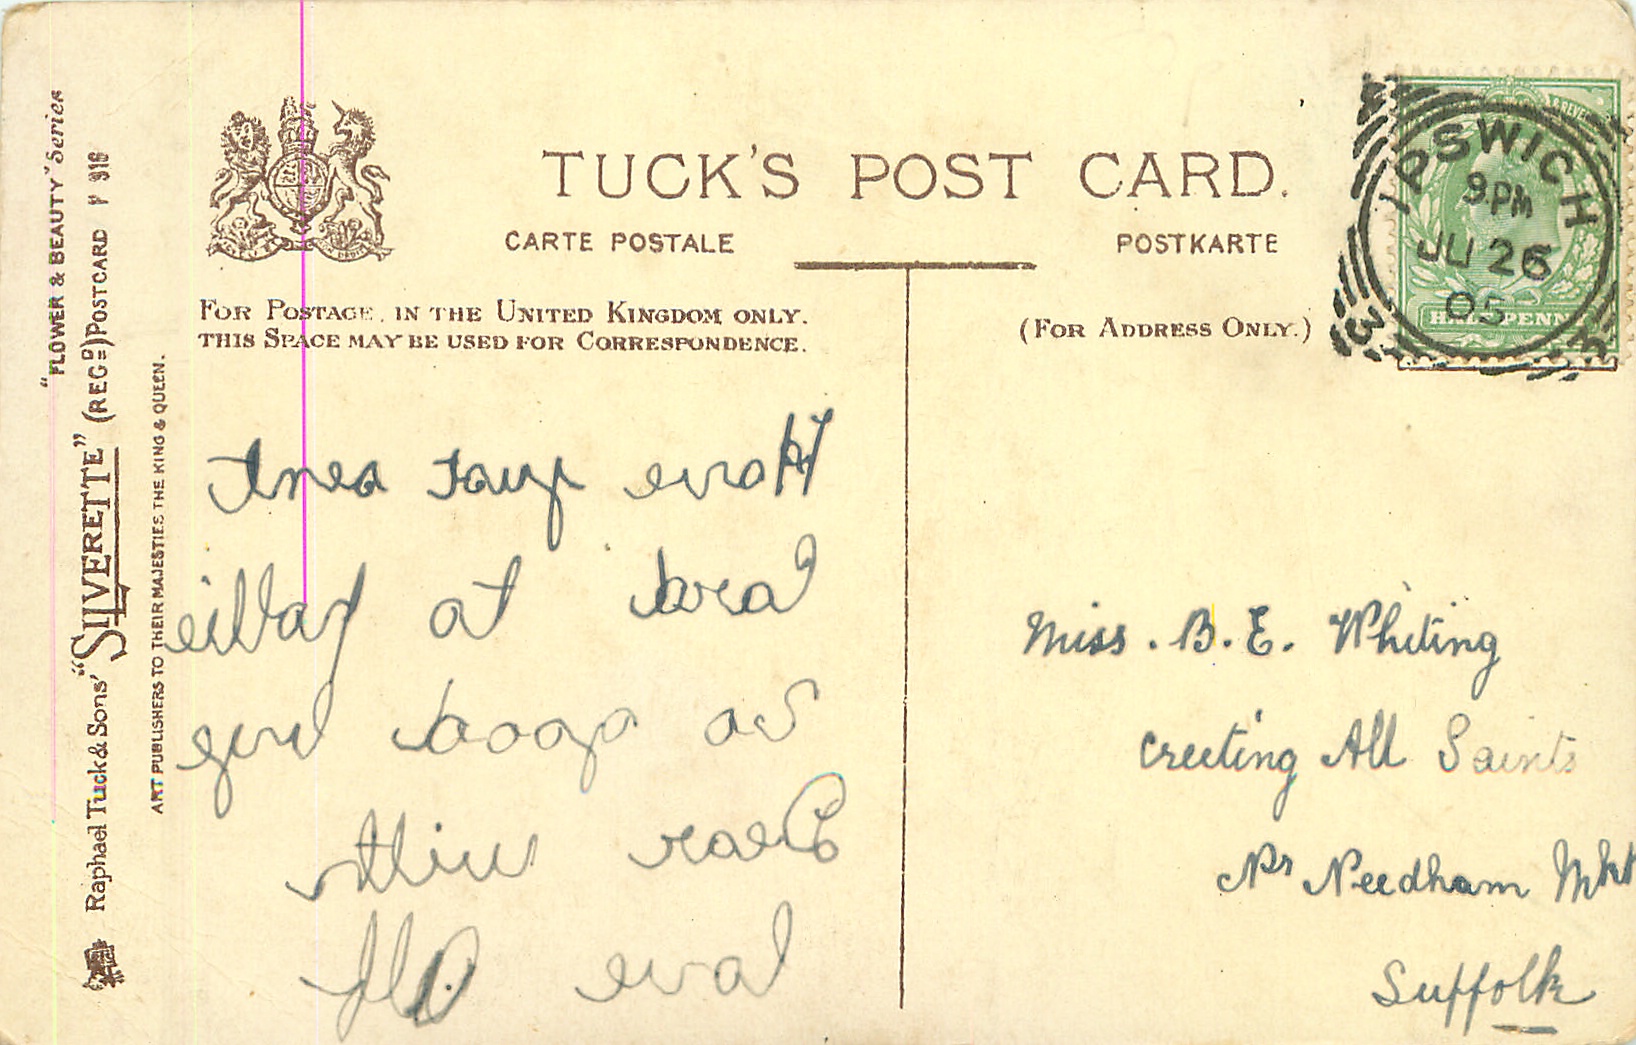 "FLOWER & BEAUTY" Series
Raphael Tuck & Sons' "SILVERETTE" (REGD) POSTCARD P 916
ART PUBLISHERS TO THEIR MAJESTIES THE KING & QUEEN.
TUCK'S POST CARD.
CARTE POSTALE POSTKARTE
FOR POSTAGE IN THE UNITED KINGDOM ONLY.
THIS SPACE MAY BE USED FOR CORRESPONDENCE.
(FOR ADDRESS ONLY.)
IPSWICH
9.PM
JU 26
05
HALFPENNY
Have just sent
card to
So good bye
Dear with
love
Miss. B. E. Whiting
Creeting All Saints
Nr Needham Mkt
Suffolk